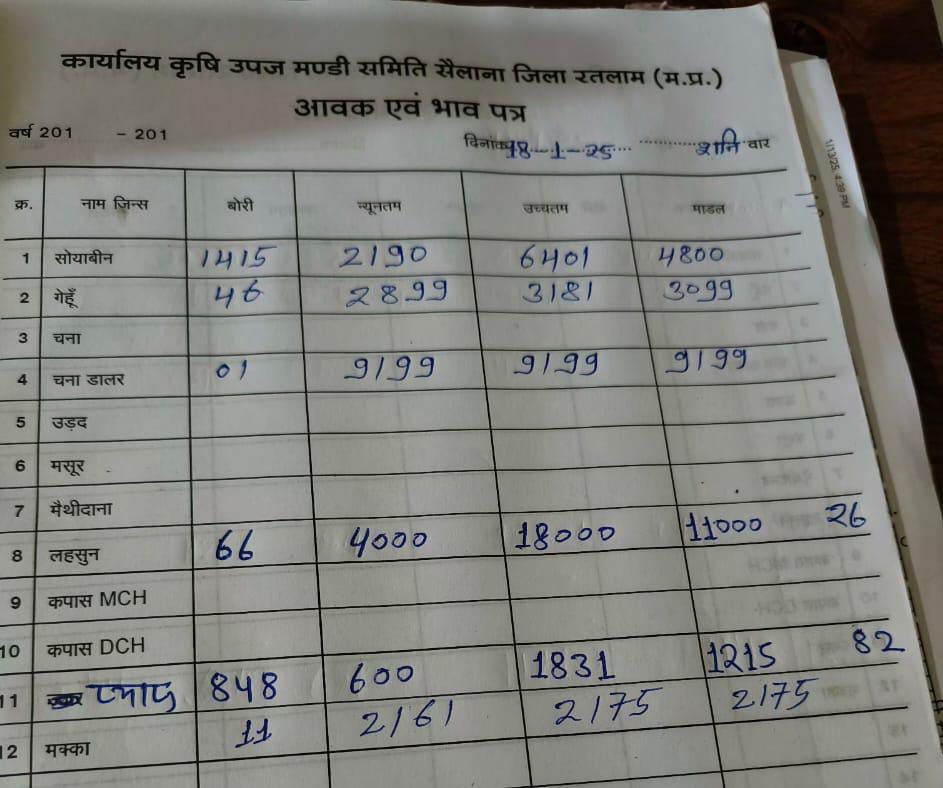 कार्यालय कृषि उपज मण्डी समिति सैलाना जिला रतलाम (म.प्र.)
आवक एवं भाव पत्र
वर्ष 201 - 201 दिनांक 18-1-25 शनि वार
क्र. नाम जिन्स बोरी न्यूनतम उच्चतम माडल
1 सोयाबीन 1415 2190 6401 4800
2 गेहूँ 46 2899 3181 3099
3 चना
4 चना डालर 01 9199 9199 9199
5 उड़द
6 मसूर
7 मैथीदाना
8 लहसुन 66 4000 18000 11000 26
9 कपास MCH
10 कपास DCH
11 प्याज 848 600 1831 1215 82
12 मक्का 11 2161 2175 2175
1/13/25, 4:39 PM